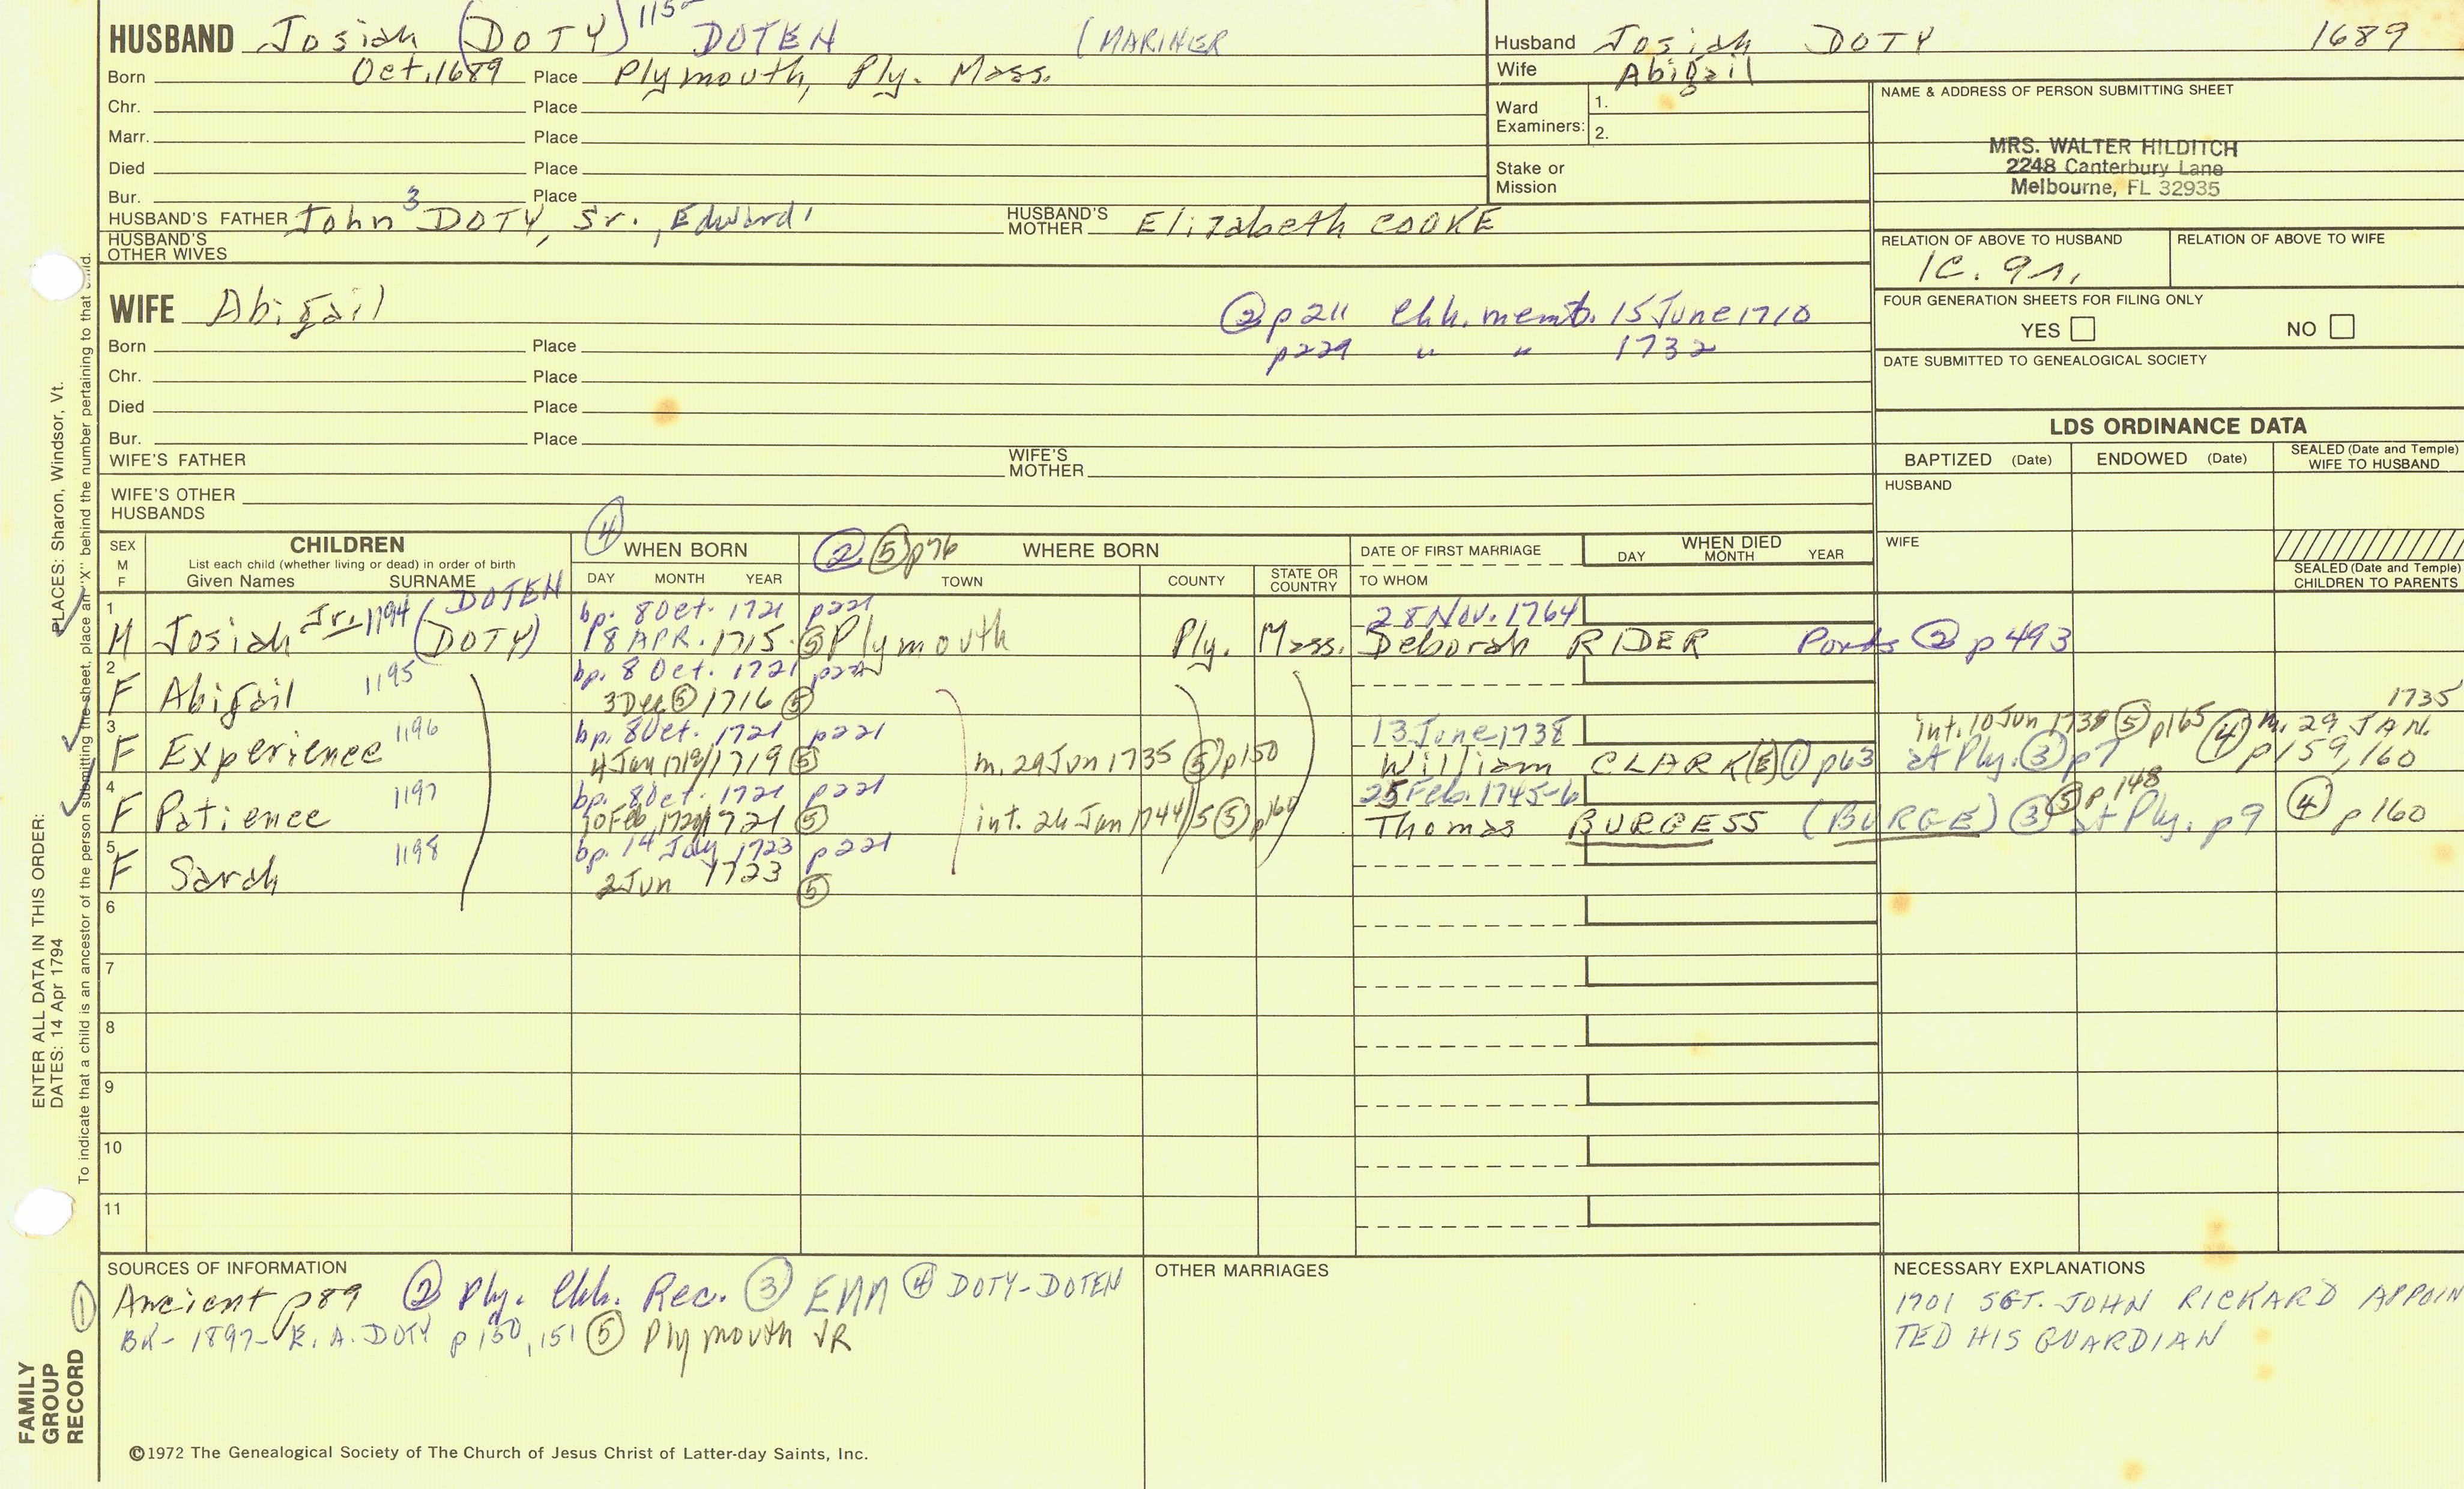 HUSBAND Josiah (DOTY) 115 DOTEN (MARINER
Born Oct. 1689 Place Plymouth, Ply. Mass.
Chr. Place
Marr. Place
Died Place
Bur. Place
HUSBAND'S FATHER John 3 DOTY, Sr., Edward 1 HUSBAND'S MOTHER Elizabeth COOKE
HUSBAND'S OTHER WIVES
Husband Josiah DOTY 1689
Wife Abigail
Ward Examiners: 1.
2.
Stake or Mission
NAME & ADDRESS OF PERSON SUBMITTING SHEET
MRS. WALTER HILDITCH
2248 Canterbury Lane
Melbourne, FL 32935
RELATION OF ABOVE TO HUSBAND RELATION OF ABOVE TO WIFE
1C. 9r.
FOUR GENERATION SHEETS FOR FILING ONLY
YES NO
DATE SUBMITTED TO GENEALOGICAL SOCIETY
WIFE Abigail ② p211 Chh. memb. 15 June 1710
p229 " " 1732
Born Place
Chr. Place
Died Place
Bur. Place
WIFE'S FATHER WIFE'S MOTHER
WIFE'S OTHER HUSBANDS
LDS ORDINANCE DATA
BAPTIZED (Date) ENDOWED (Date) SEALED (Date and Temple) WIFE TO HUSBAND
HUSBAND
WIFE
SEALED (Date and Temple) CHILDREN TO PARENTS
SEX M F
CHILDREN
List each child (whether living or dead) in order of birth
Given Names SURNAME
④ WHEN BORN
DAY MONTH YEAR
② ⑤ p76 WHERE BORN
TOWN COUNTY STATE OR COUNTRY
DATE OF FIRST MARRIAGE
TO WHOM
WHEN DIED
DAY MONTH YEAR
1 DOTEN bp. 8 Oct. 1721 p221 28 Nov. 1764
M Josiah Jr. 1194 (DOTY) 18 APR. 1715 ⑤ Plymouth Ply. Mass. Deborah RIDER Ponds ② p493
2 bp. 8 Oct. 1721 p221
F Abigail 1195 3 Dec ⑤ 1716 ⑤
3 bp. 8 Oct. 1721 p221 13 June 1738 int. 10 Jun 1738 ⑤ p165 ④ m. 29 JAN. 1735
F Experience 1196 4 Jan 1718/1719 ⑤ m. 29 Jan 1735 ⑤ p150 William CLARK(E) ① p63 at Ply. ③ p7 p159,160
4 bp. 8 Oct. 1721 p221 25 Feb. 1745-6 ⑤ p148
F Patience 1197 10 Feb 1720/1721 ⑤ int. 26 Jan 1744/5 ⑤ p160 Thomas BURGESS (BURGE) ③ at Ply. p9 ④ p160
5 bp. 14 July 1723 p221
F Sarah 1198 2 Jun 1723 ⑤
6
7
8
9
10
11
SOURCES OF INFORMATION
① Ancient p89 ② Ply. Chh. Rec. ③ EMM ④ DOTY-DOTEN
BK- 1897- E. A. DOTY p 150, 151 ⑤ Plymouth VR
OTHER MARRIAGES
NECESSARY EXPLANATIONS
1701 SGT. JOHN RICKARD APPOIN
TED HIS GUARDIAN
©1972 The Genealogical Society of The Church of Jesus Christ of Latter-day Saints, Inc.
FAMILY GROUP RECORD
ENTER ALL DATA IN THIS ORDER:
DATES: 14 Apr 1794 PLACES: Sharon, Windsor, Vt.
To indicate that a child is an ancestor of the person submitting the sheet, place an "X" behind the number pertaining to that child.